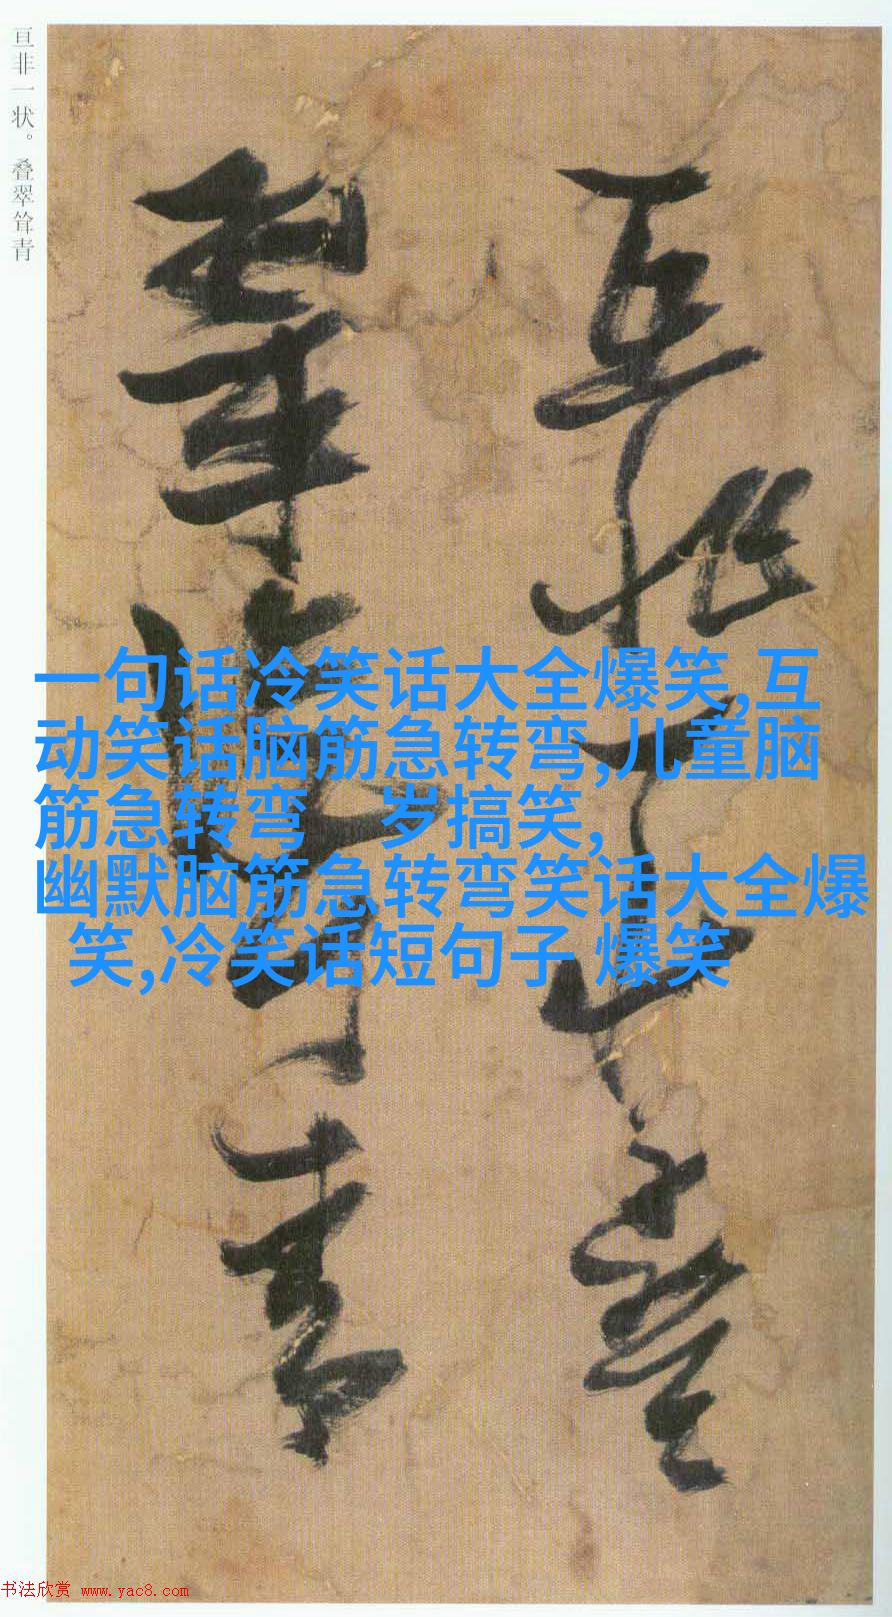 亘非一状。叠翠耸青
一句话冷笑话大全爆笑,互
动笑话脑筋急转弯,儿童脑
筋急转弯 岁搞笑,
幽默脑筋急转弯笑话大全爆
笑,冷笑话短句子 爆笑
书法欣赏 www.yac8.com